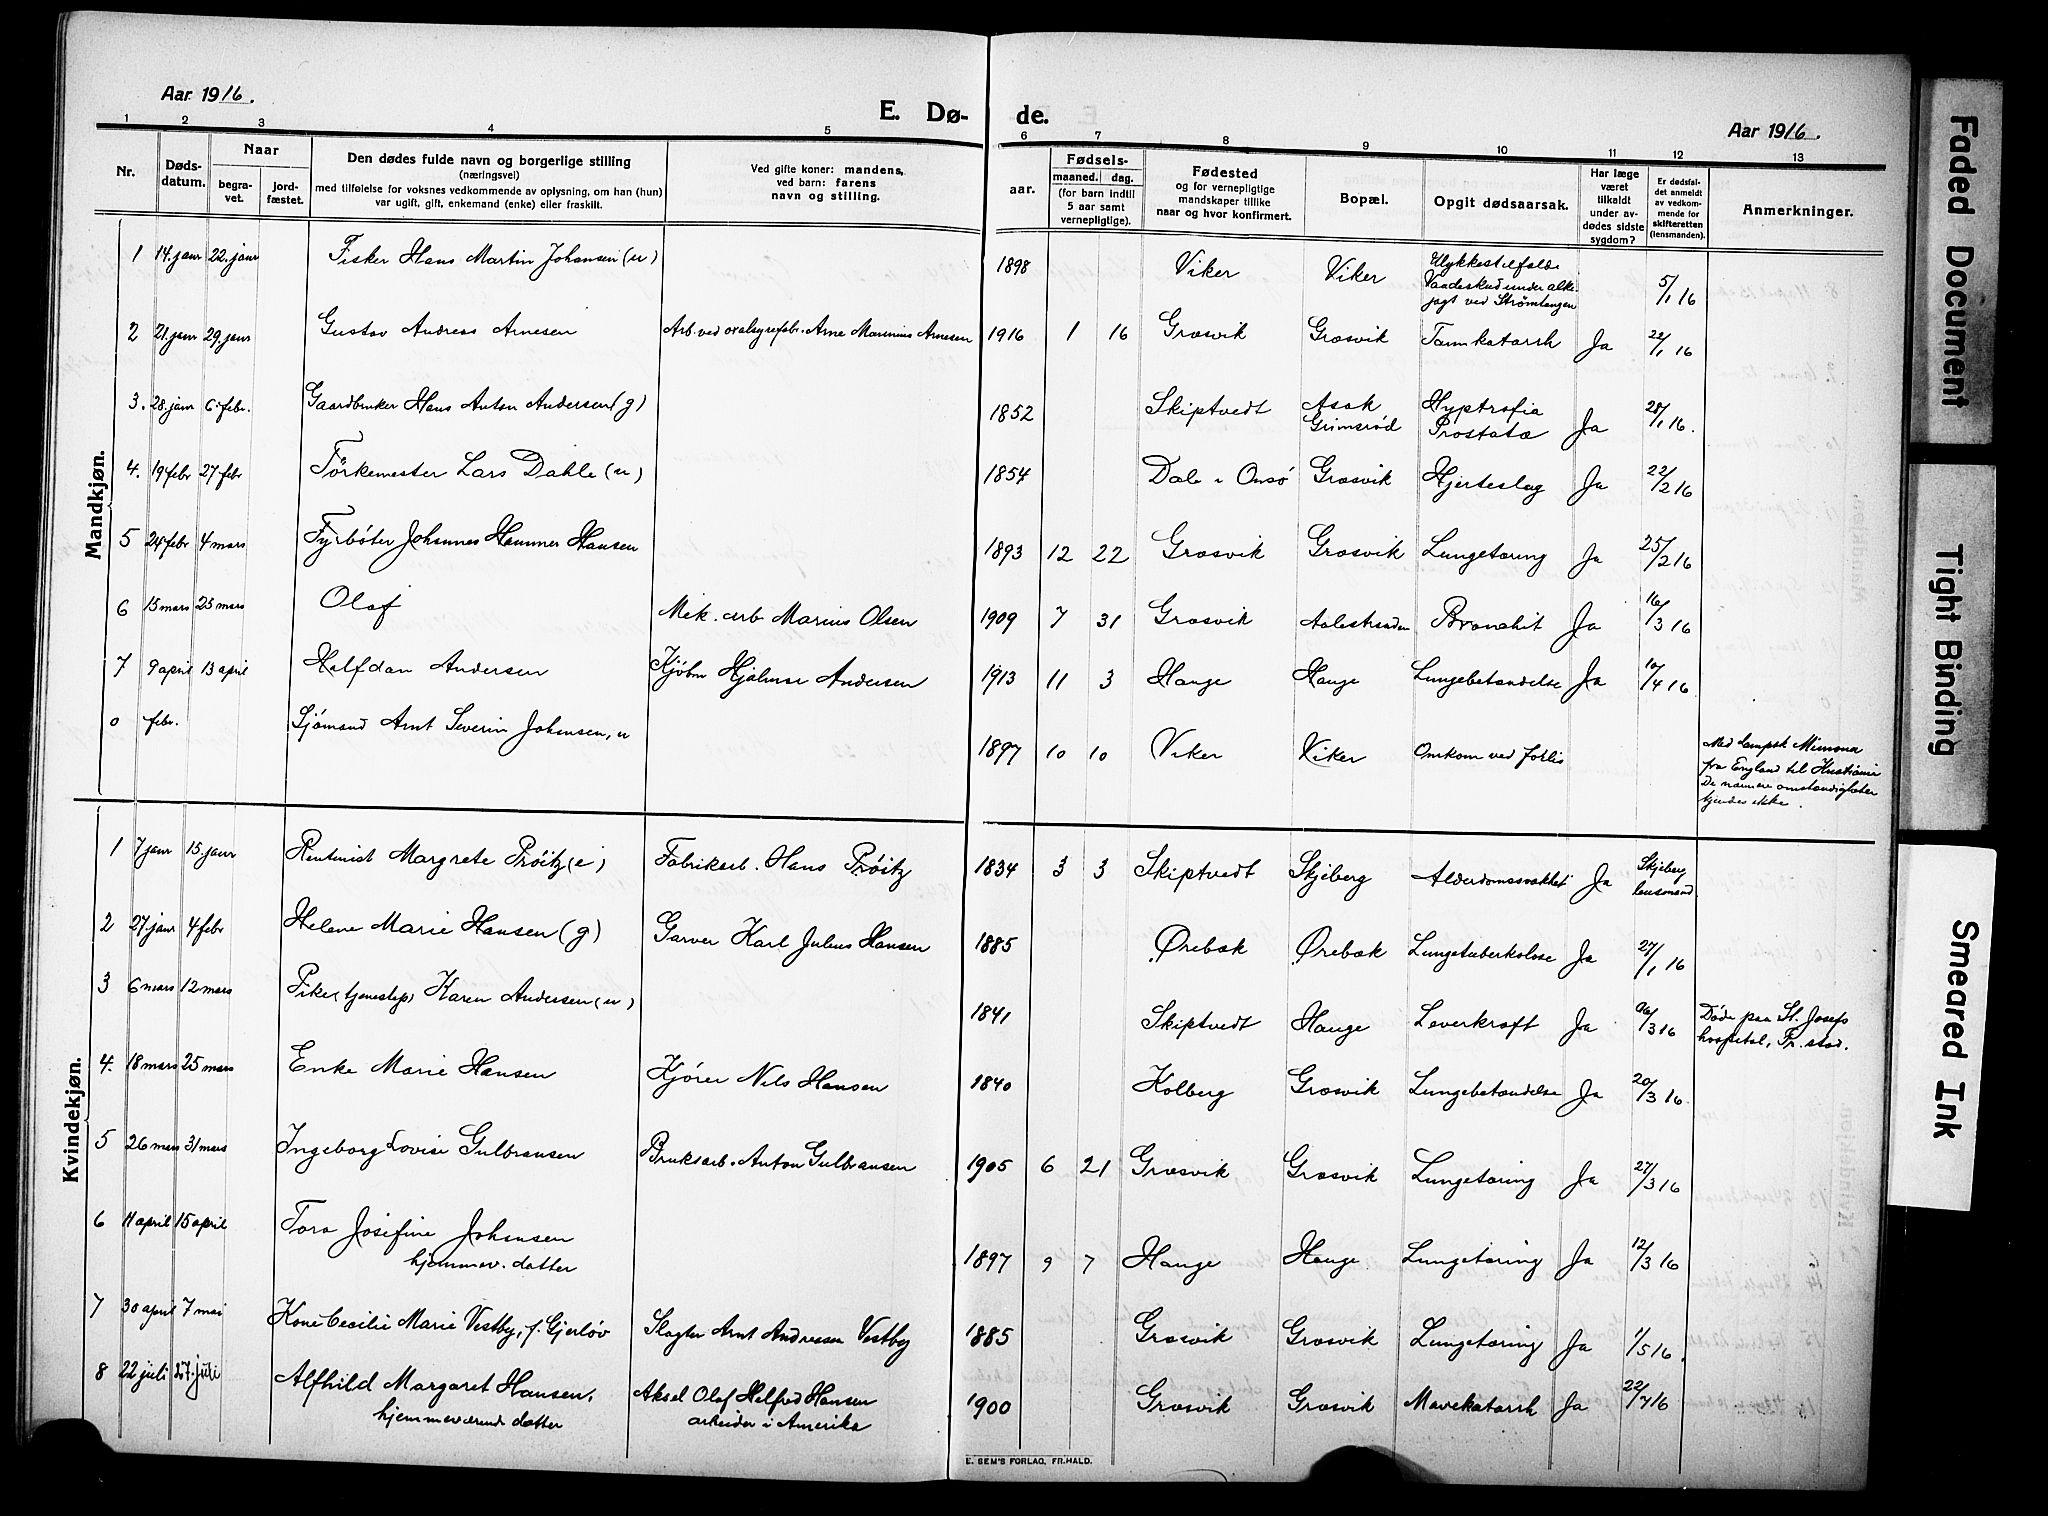 Aar 1916.
E. Dø-
de.
Aar 1916.
1 2 3 4 5 6 7 8 9 10 11 12 13
Nr.
Døds-
datum.
Naar
begra-
vet.
jord-
fæstet.
Den dødes fulde navn og borgerlige stilling
(næringsvei)
med tilføielse for voksnes vedkommende av oplysning, om han (hun)
var ugift, gift, enkemand (enke) eller fraskilt.
Ved gifte koner: mandens,
ved barn: farens
navn og stilling.
aar.
Fødsels-
maaned. dag.
(for barn indtil
5 aar samt
vernepligtige).
Fødested
og for vernepligtige
mandskaper tillike
naar og hvor konfirmert.
Bopæl.
Opgit dødsaarsak.
Har læge
været
tilkaldt
under av-
dødes sidste
sygdom?
Er dødsfal-
det anmeldt
av vedkom-
mende for
skifteretten
(lensmanden).
Anmerkninger.
Mandkjøn.
1 14. janr 22. janr Fisker Hans Martin Johansen (u) 1898 Viker Viker Ulykkestilfælde
Vaadeskud under alke-
jagt ved Strømtangen 5/1 16
2 21. janr 29. janr Gustav Andreas Arnesen Arb. ved oxalsyrefab. Arne Marinius Arnesen 1916 1 16 Græsvik Græsvik Tarmkatarrh Ja 22/1 16
3. 28. janr 6. febr. Gaardbruker Hans Anton Andersen (g) 1852 Skiptvedt Asak
Grimsrød Hyptrofia
Prostatæ Ja 28/1 16.
4. 19 febr 27 febr Tørkemester Lars Dahle (u) 1854 Dale i Onsø Græsvik Hjerteslag Ja 22/2 16
5 24 febr 4 mars Fyrbøter Johannes Hammer Hansen 1893 12 22 Græsvik Græsvik Lungetæring Ja 25/2 16
6 15 mars 23 mars Olaf Mek. arb Marius Olsen 1909 7 31 Græsvik Aalestranden Bronchit Ja 16/3 16
7 9 april 13 april Halfdan Andersen Kjøbm Hjalmar Andersen 1913 11 3 Hauge Hauge Lungebetændelse Ja 10/4 16
0 febr. Sjømand Arnt Severin Johansen, u 1897 10 10 Viker Viker Omkom ved forlis Med dampsk Mimona
fra England til Kristiania
De nærmere omstændigheter
kjendes ikke.
Kvindekjøn.
1 7 janr 15. janr Rentenist Margrete Prøitz (e) Fabrikarb. Hans Prøitz 1834 3 3 Skiptvedt Skjeberg Alderdomssvakhet Ja Skjeberg
lensmand
2 27. janr 4 febr Helene Marie Hansen (g) Garver Karl Julius Hansen 1885 Ørebæk Ørebæk Lungetuberkolose Ja 27/1 16
3 6 mars 12 mars Pike (tjenestep) Karen Andersen (u) 1841 Skiptvedt Hauge Leverkræft Ja /3 16 Døde paa St. Josefs
hospetal, Fr. stad.
4. 18 mars 25 mars Enke Marie Hansen Kjører Nils Hansen 1840 Kolberg Græsvik Lungebetændelse Ja 20/3 16.
5 26 mars 31 mars Ingeborg Lovise Gulbransen Bruksarb. Anton Gulbransen 1905 6 21 Græsvik Græsvik Lungetæring Ja 27/3 16
6 11 april 15 april Tora Josefine Johansen
hjemmev. datter 1897 9 7 Hauge Hauge Lungetæring Ja 12/3 16
7 30 april 7 mai Kone Cecilie Marie Vestby, f. Gjerløv Slagter Arnt Andresen Vestby 1885 Græsvik Græsvik Lungetæring Ja 1/5 16.
8 22 juli 27. juli Alfhild Margaret Hansen,
hjemmeværende datter Aksel Olaf Helfred Hansen
arbeider i Amerika 1900 Græsvik Græsvik Mavekatarrh Ja 22/7 16
E. SEM'S FORLAG, FR.HALD.
Faded Document
Tight Binding
Smeared Ink